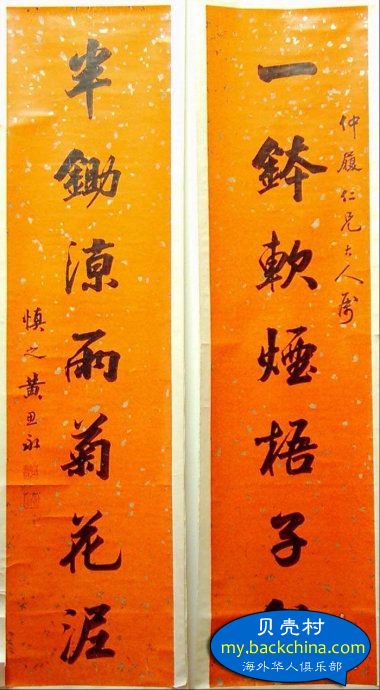 仲履仁兄大人属
一鉢軟煙梧子
半鋤涼雨菊花泥
慎之黄思永
贝壳村
my.backchina.com
海外华人俱乐部